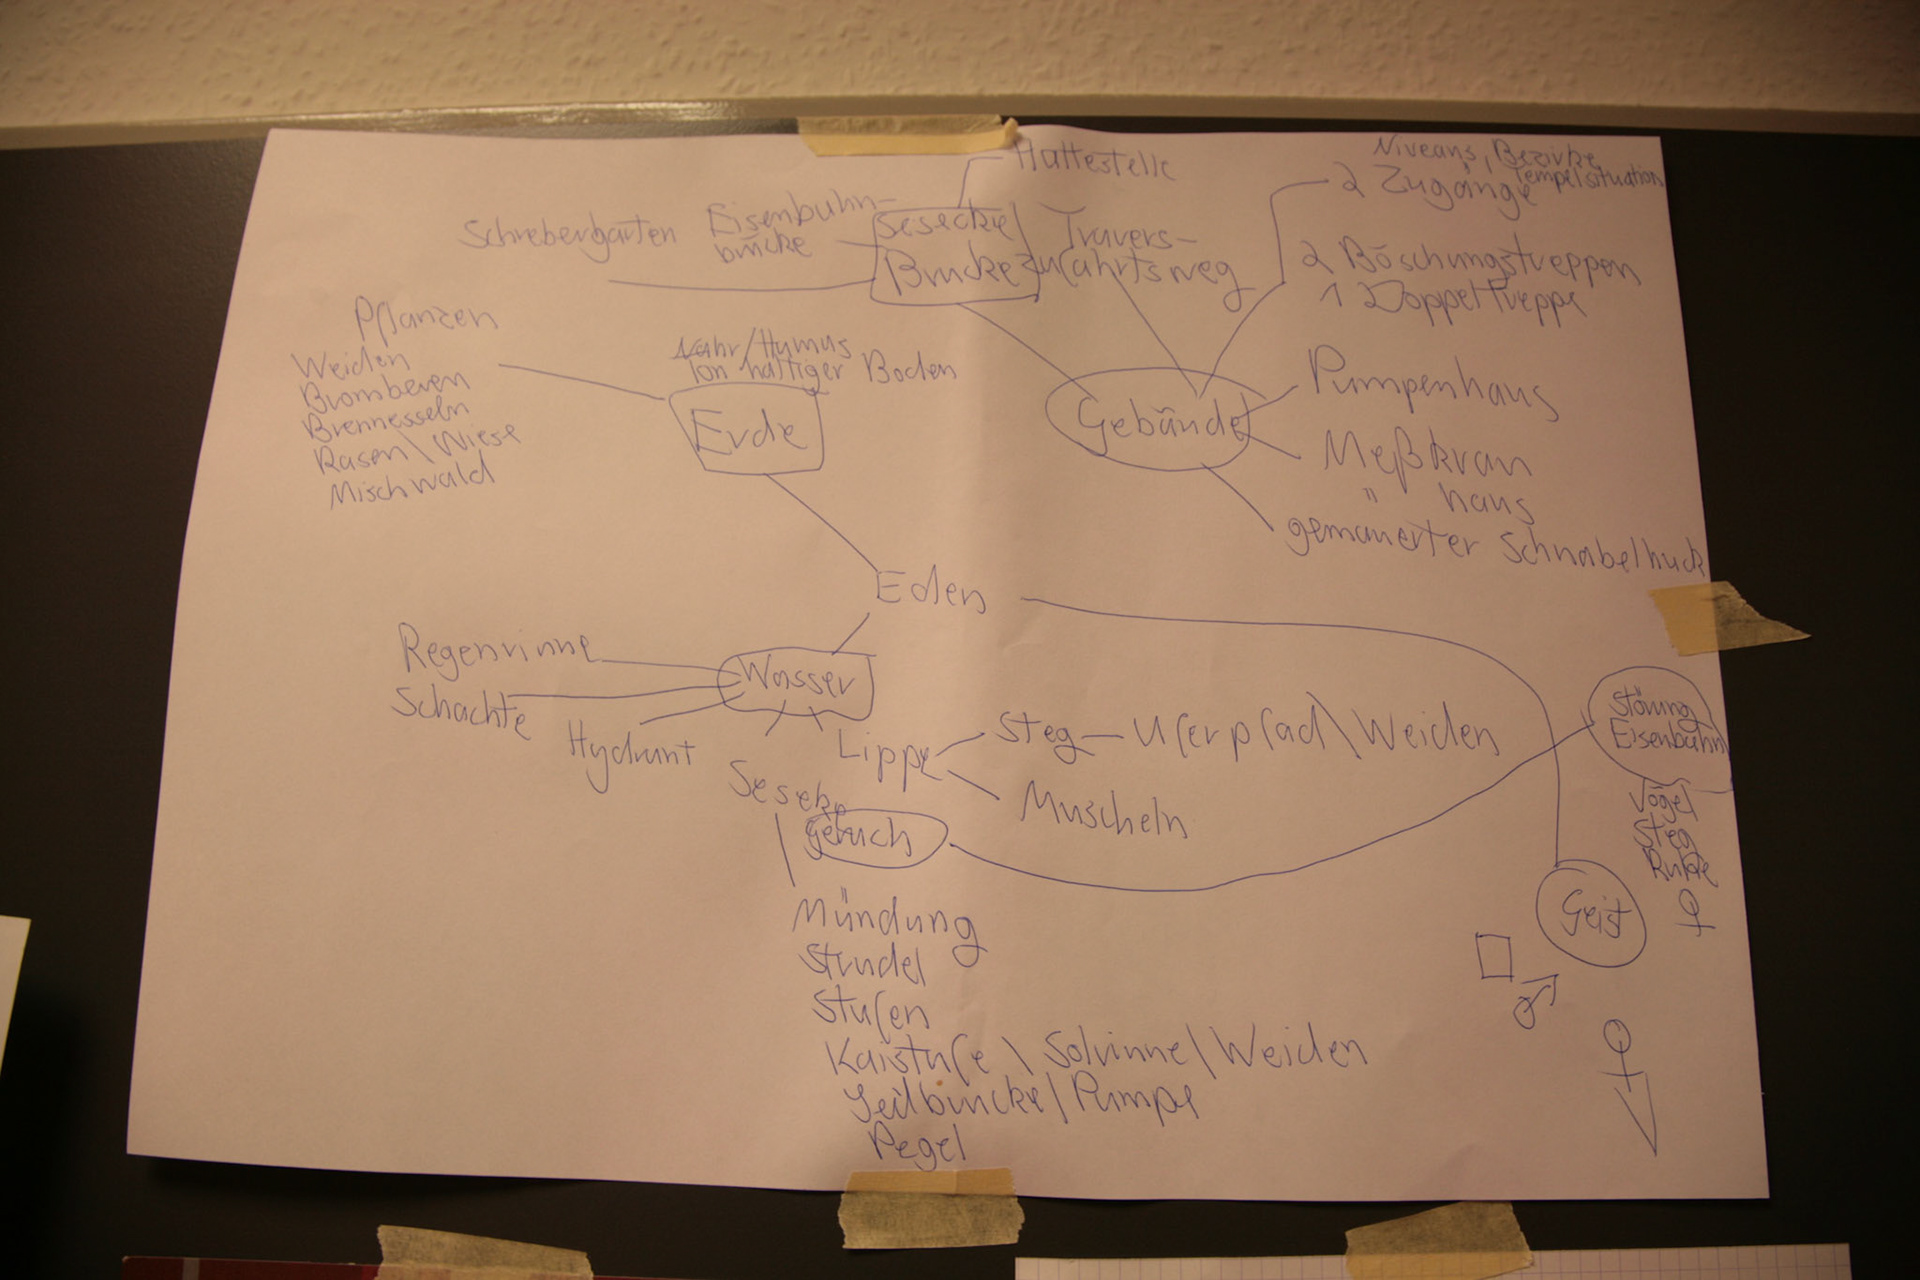 Haltestelle
Niveaus, Bezirke
Tempelsituation
2 Zugänge
Schrebergarten
Eisenbahn-
brücke
Sesecke
Brücke
Travers-
zufahrtsweg
2 Böschungstreppen
1 Doppeltreppe
Pflanzen
Weiden
Brombeeren
Brennesseln
Rasen \ Wiese
Mischwald
Nahr/Humus
Ton haltiger Boden
Erde
Gebäude
Pumpenhaus
Meßkran
" haus
gemauerter Schnabelhuck
Eden
Regenrinne
Schächte
Hydrant
Wasser
Seseke
Geruch
Lippe
Steg — Uferpfad \ Weiden
Muscheln
Störung
Eisenbahn
Vögel
Steg
Ruhe
Geist
Mündung
Strudel
Stufen
Kaistufe \ Solrinne / Weiden
Seilbrücke / Pumpe
Pegel